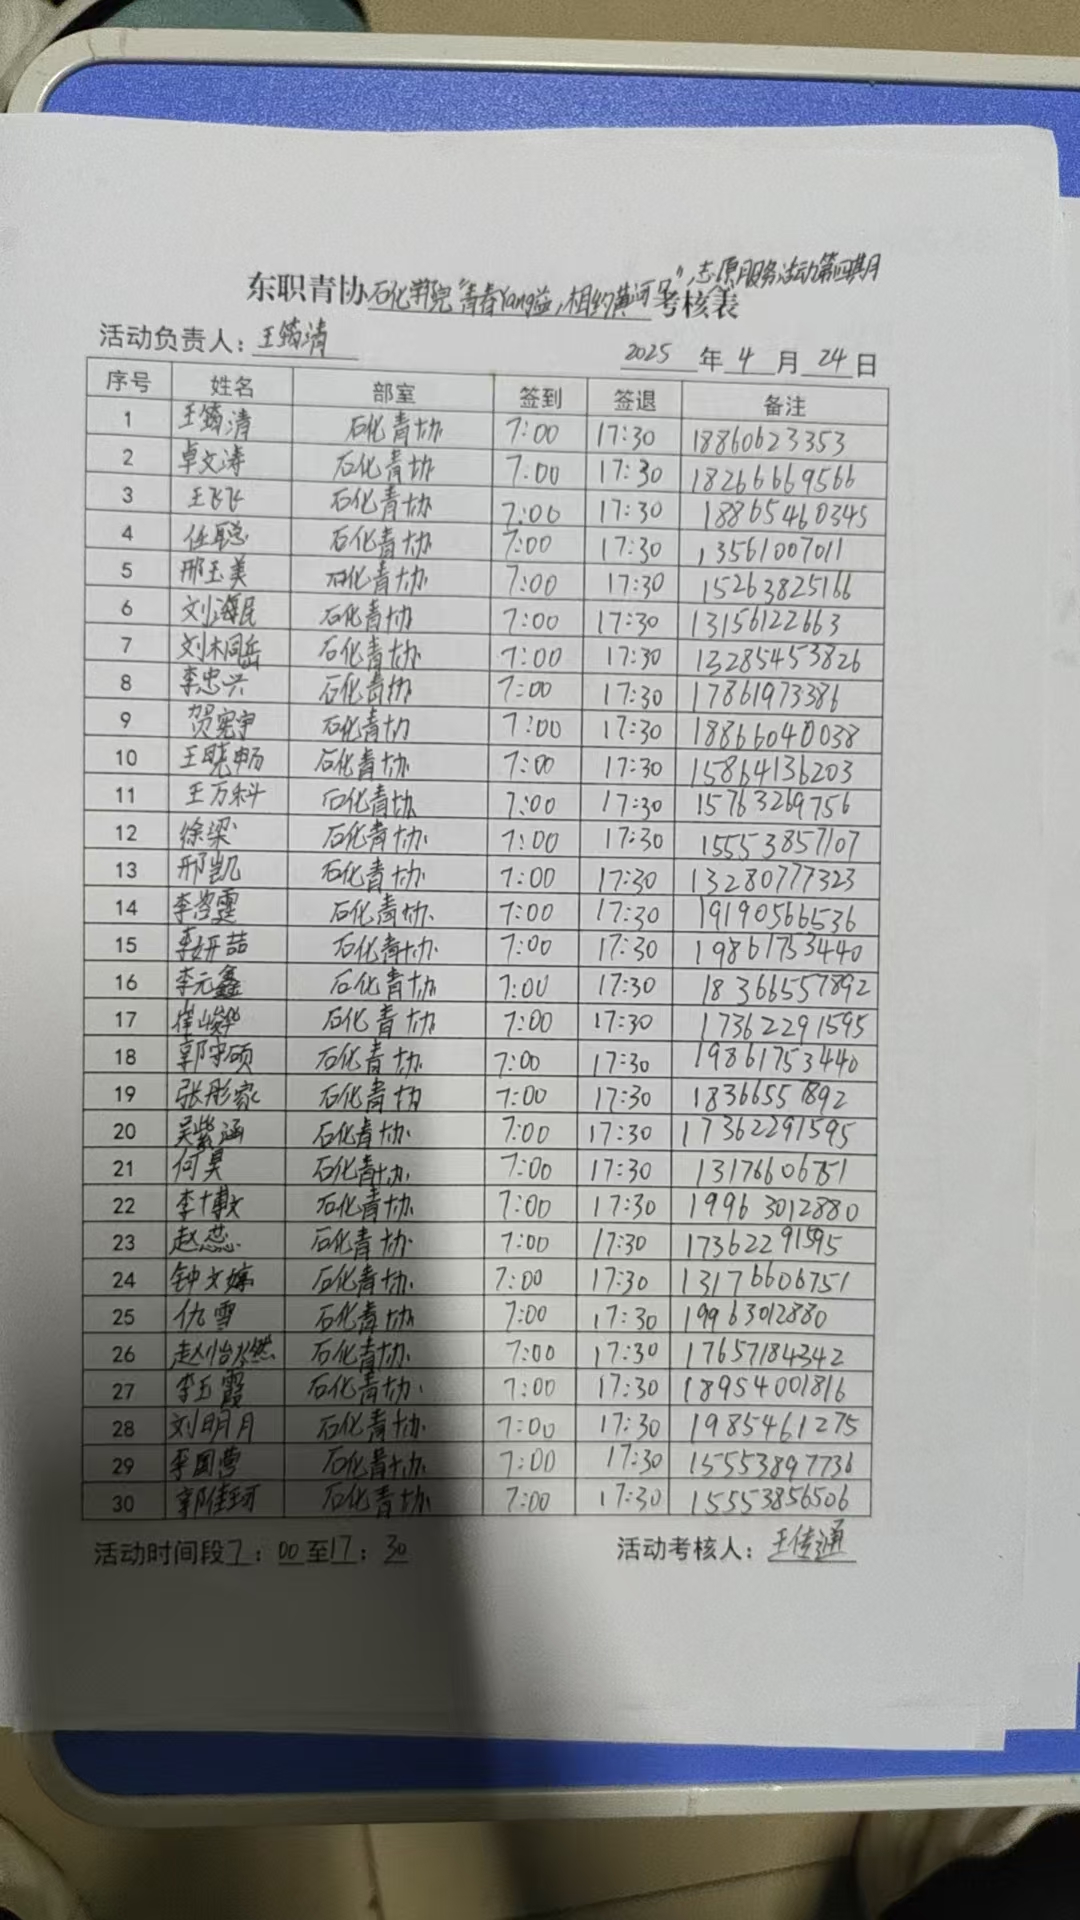 东职青协石化学院"青春Yang益,相约黄河口",志愿服务活动第四期月考核表
活动负责人:王筠清 2025年4月24日
序号 姓名 部室 签到 签退 备注
1 王筠清 石化青协 7:00 17:30 18860623353
2 卓文涛 石化青协 7:00 17:30 18266669566
3 王飞飞 石化青协 7:00 17:30 18865460345
4 任聪 石化青协 7:00 17:30 13561007011
5 邢玉美 石化青协 7:00 17:30 15263825166
6 刘海民 石化青协 7:00 17:30 13156122663
7 刘桐岳 石化青协 7:00 17:30 13285453826
8 李忠兴 石化青协 7:00 17:30 17861973386
9 贺宪宇 石化青协 7:00 17:30 18866040038
10 王晓畅 石化青协 7:00 17:30 15864136203
11 王万科 石化青协 7:00 17:30 15763269756
12 徐梁 石化青协 7:00 17:30 15553857107
13 邢凯 石化青协 7:00 17:30 13280777323
14 李咨霆 石化青协 7:00 17:30 19190566536
15 李妍喆 石化青协 7:00 17:30 19861753440
16 李元鑫 石化青协 7:00 17:30 18366557892
17 崔峻华 石化青协 7:00 17:30 17362291595
18 郭守硕 石化青协 7:00 17:30 19861753440
19 张彤家 石化青协 7:00 17:30 18366551892
20 吴紫涵 石化青协 7:00 17:30 17362291595
21 何昊 石化青协 7:00 17:30 13176606751
22 李博文 石化青协 7:00 17:30 19963012880
23 赵蕊 石化青协 7:00 17:30 17362291595
24 钟文婷 石化青协 7:00 17:30 13176606751
25 仇雪 石化青协 7:00 17:30 19963012880
26 赵怡然 石化青协 7:00 17:30 17657184342
27 李玉霞 石化青协 7:00 17:30 18954001816
28 刘明月 石化青协 7:00 17:30 1985461275
29 李国营 石化青协 7:00 17:30 15553897736
30 郭佳珂 石化青协 7:00 17:30 15553856506
活动时间段7:00至17:30 活动考核人:王传通